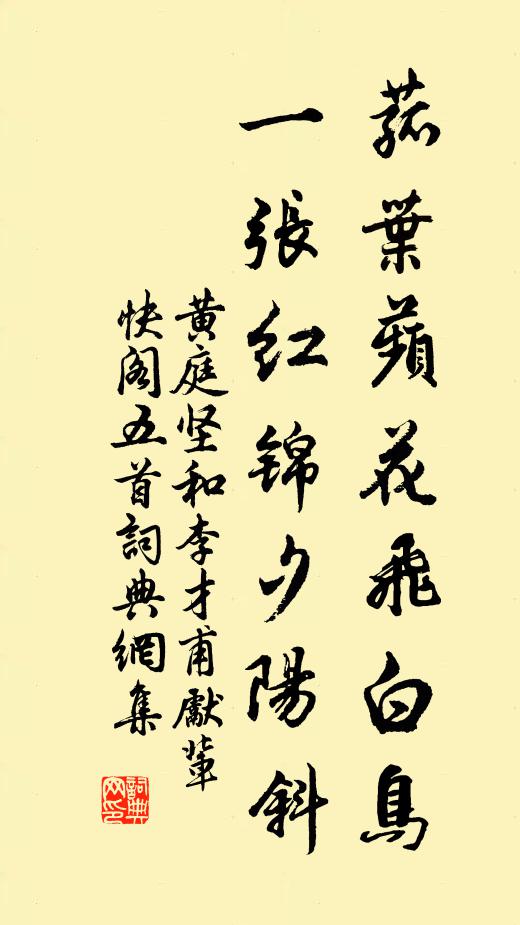 菰葉蘋花飛白鳥
一張紅錦夕陽斜
黄庭坚和李才甫獻輩
快阁五首詞典網集
詞典网印